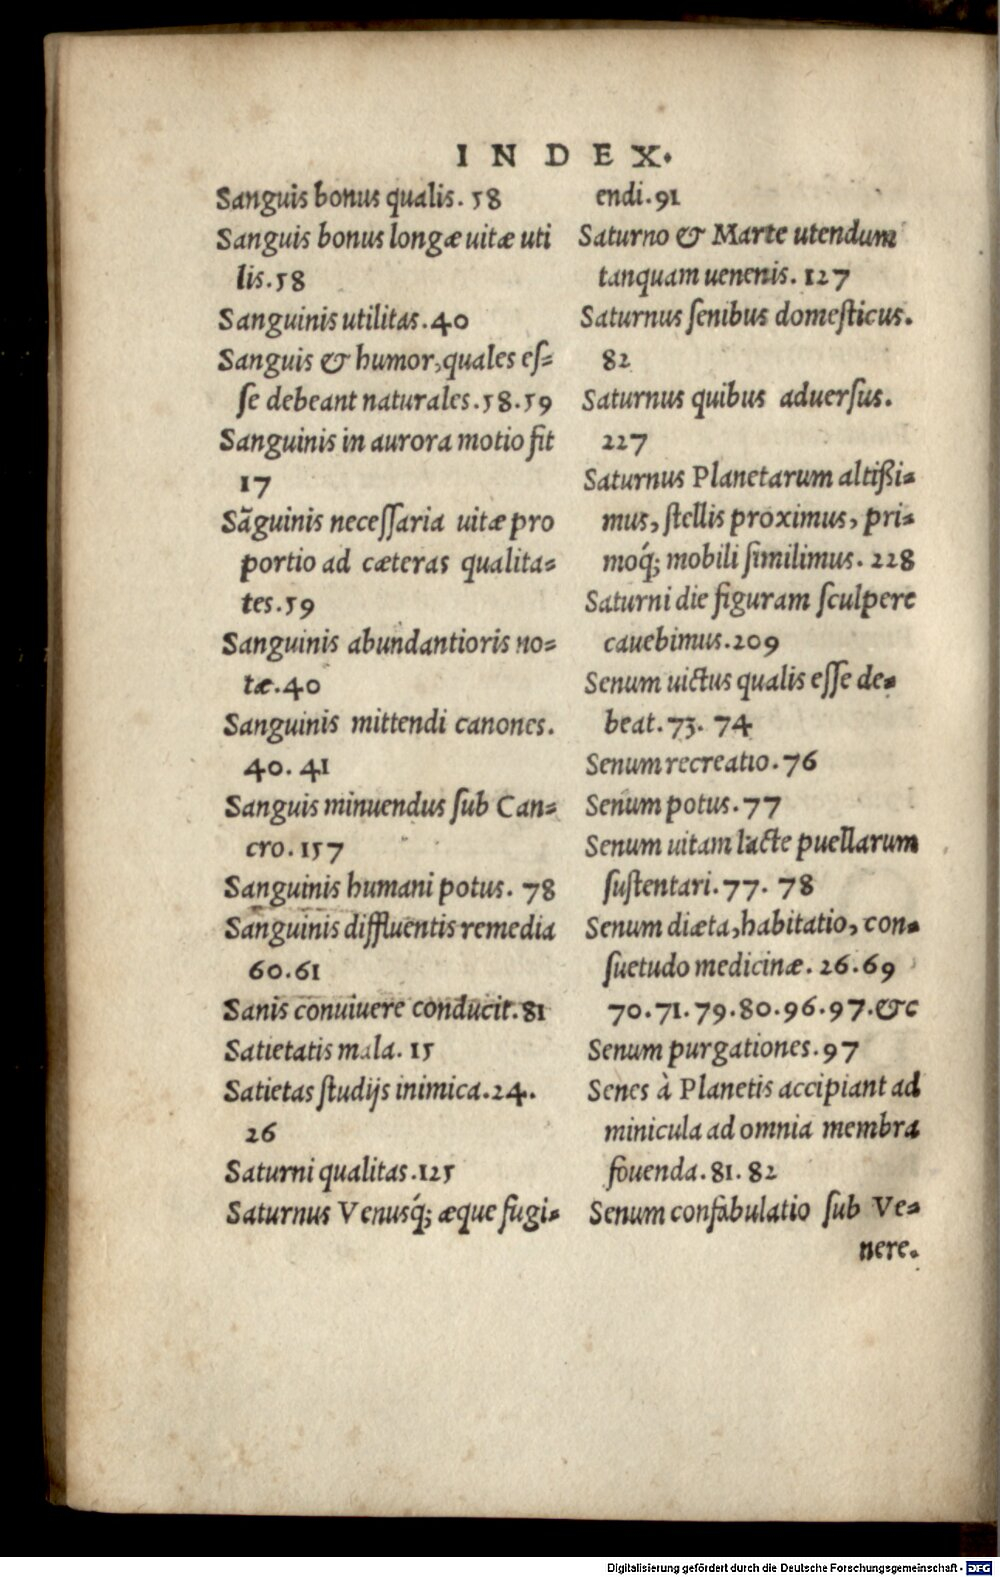 INDEX.
Sanguis bonus qualis. 58
Sanguis bonus longæ uitæ uti
lis. 58
Sanguinis utilitas. 40
Sanguis & humor, quales eſ=
ſe debeant naturales. 58. 59
Sanguinis in aurora motio fit
17
Sāguinis neceſſaria uitæ pro
portio ad cæteras qualita=
tes. 59
Sanguinis abundantioris no=
tæ. 40
Sanguinis mittendi canones.
40. 41
Sanguis minuendus ſub Can=
cro. 157
Sanguinis humani potus. 78
Sanguinis diffluentis remedia
60. 61
Sanis conuiuere conducit. 81
Satietatis mala. 15
Satietas ſtudijs inimica. 24.
26
Saturni qualitas. 125
Saturnus Venusq́; æque fugi=
endi. 91
Saturno & Marte utendum
tanquam uenenis. 127
Saturnus ſenibus domeſticus.
82
Saturnus quibus aduerſus.
227
Saturnus Planetarum altißi=
mus, ſtellis proximus, pri=
moq́; mobili ſimilimus. 228
Saturni die figuram ſculpere
cauebimus. 209
Senum uictus qualis eſſe de=
beat. 73. 74
Senum recreatio. 76
Senum potus. 77
Senum uitam lacte puellarum
ſuſtentari. 77. 78
Senum diæta, habitatio, con=
ſuetudo medicinæ. 26. 69
70. 71. 79. 80. 96. 97. &c
Senum purgationes. 97
Senes à Planetis accipiant ad
minicula ad omnia membra
fouenda. 81. 82
Senum confabulatio ſub Ve=
nere.
Digitalisierung gefördert durch die Deutsche Forschungsgemeinschaft - DFG